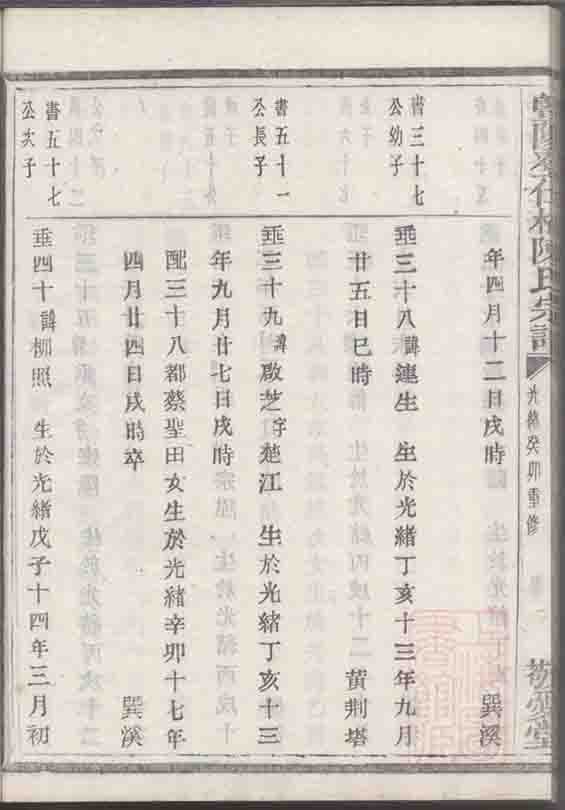 陳氏宗譜
光緒癸卯重修
敬愛堂
年四月十二日戌時 巽溪
書三十七
公幼子
垂三十八諱連生 生於光緒丁亥十三年九月
廿五日巳時 黃荆塔
書五十一
公長子
垂三十九諱啟芝字楚江 生於光緒丁亥十三
年九月廿七日戌時
配三十八都蔡聖田女生於光緒辛卯十七年
四月廿四日戌時卒 巽溪
書五十七
公次子
垂四十諱柳照 生於光緒戊子十四年三月初